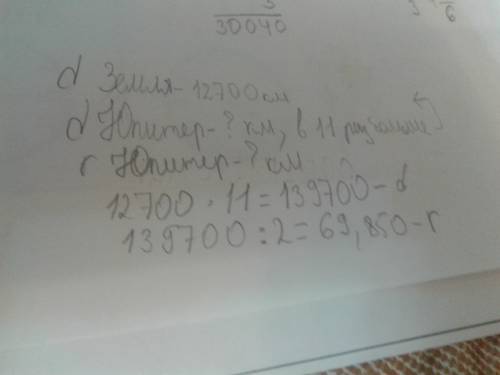 3
30040
3
6
d Земля - 12700 км
d Юпитер - ? км, в 11 раз больше
r Юпитер - ? км
12700 · 11 = 139700 - d
139700 : 2 = 69,850 - r